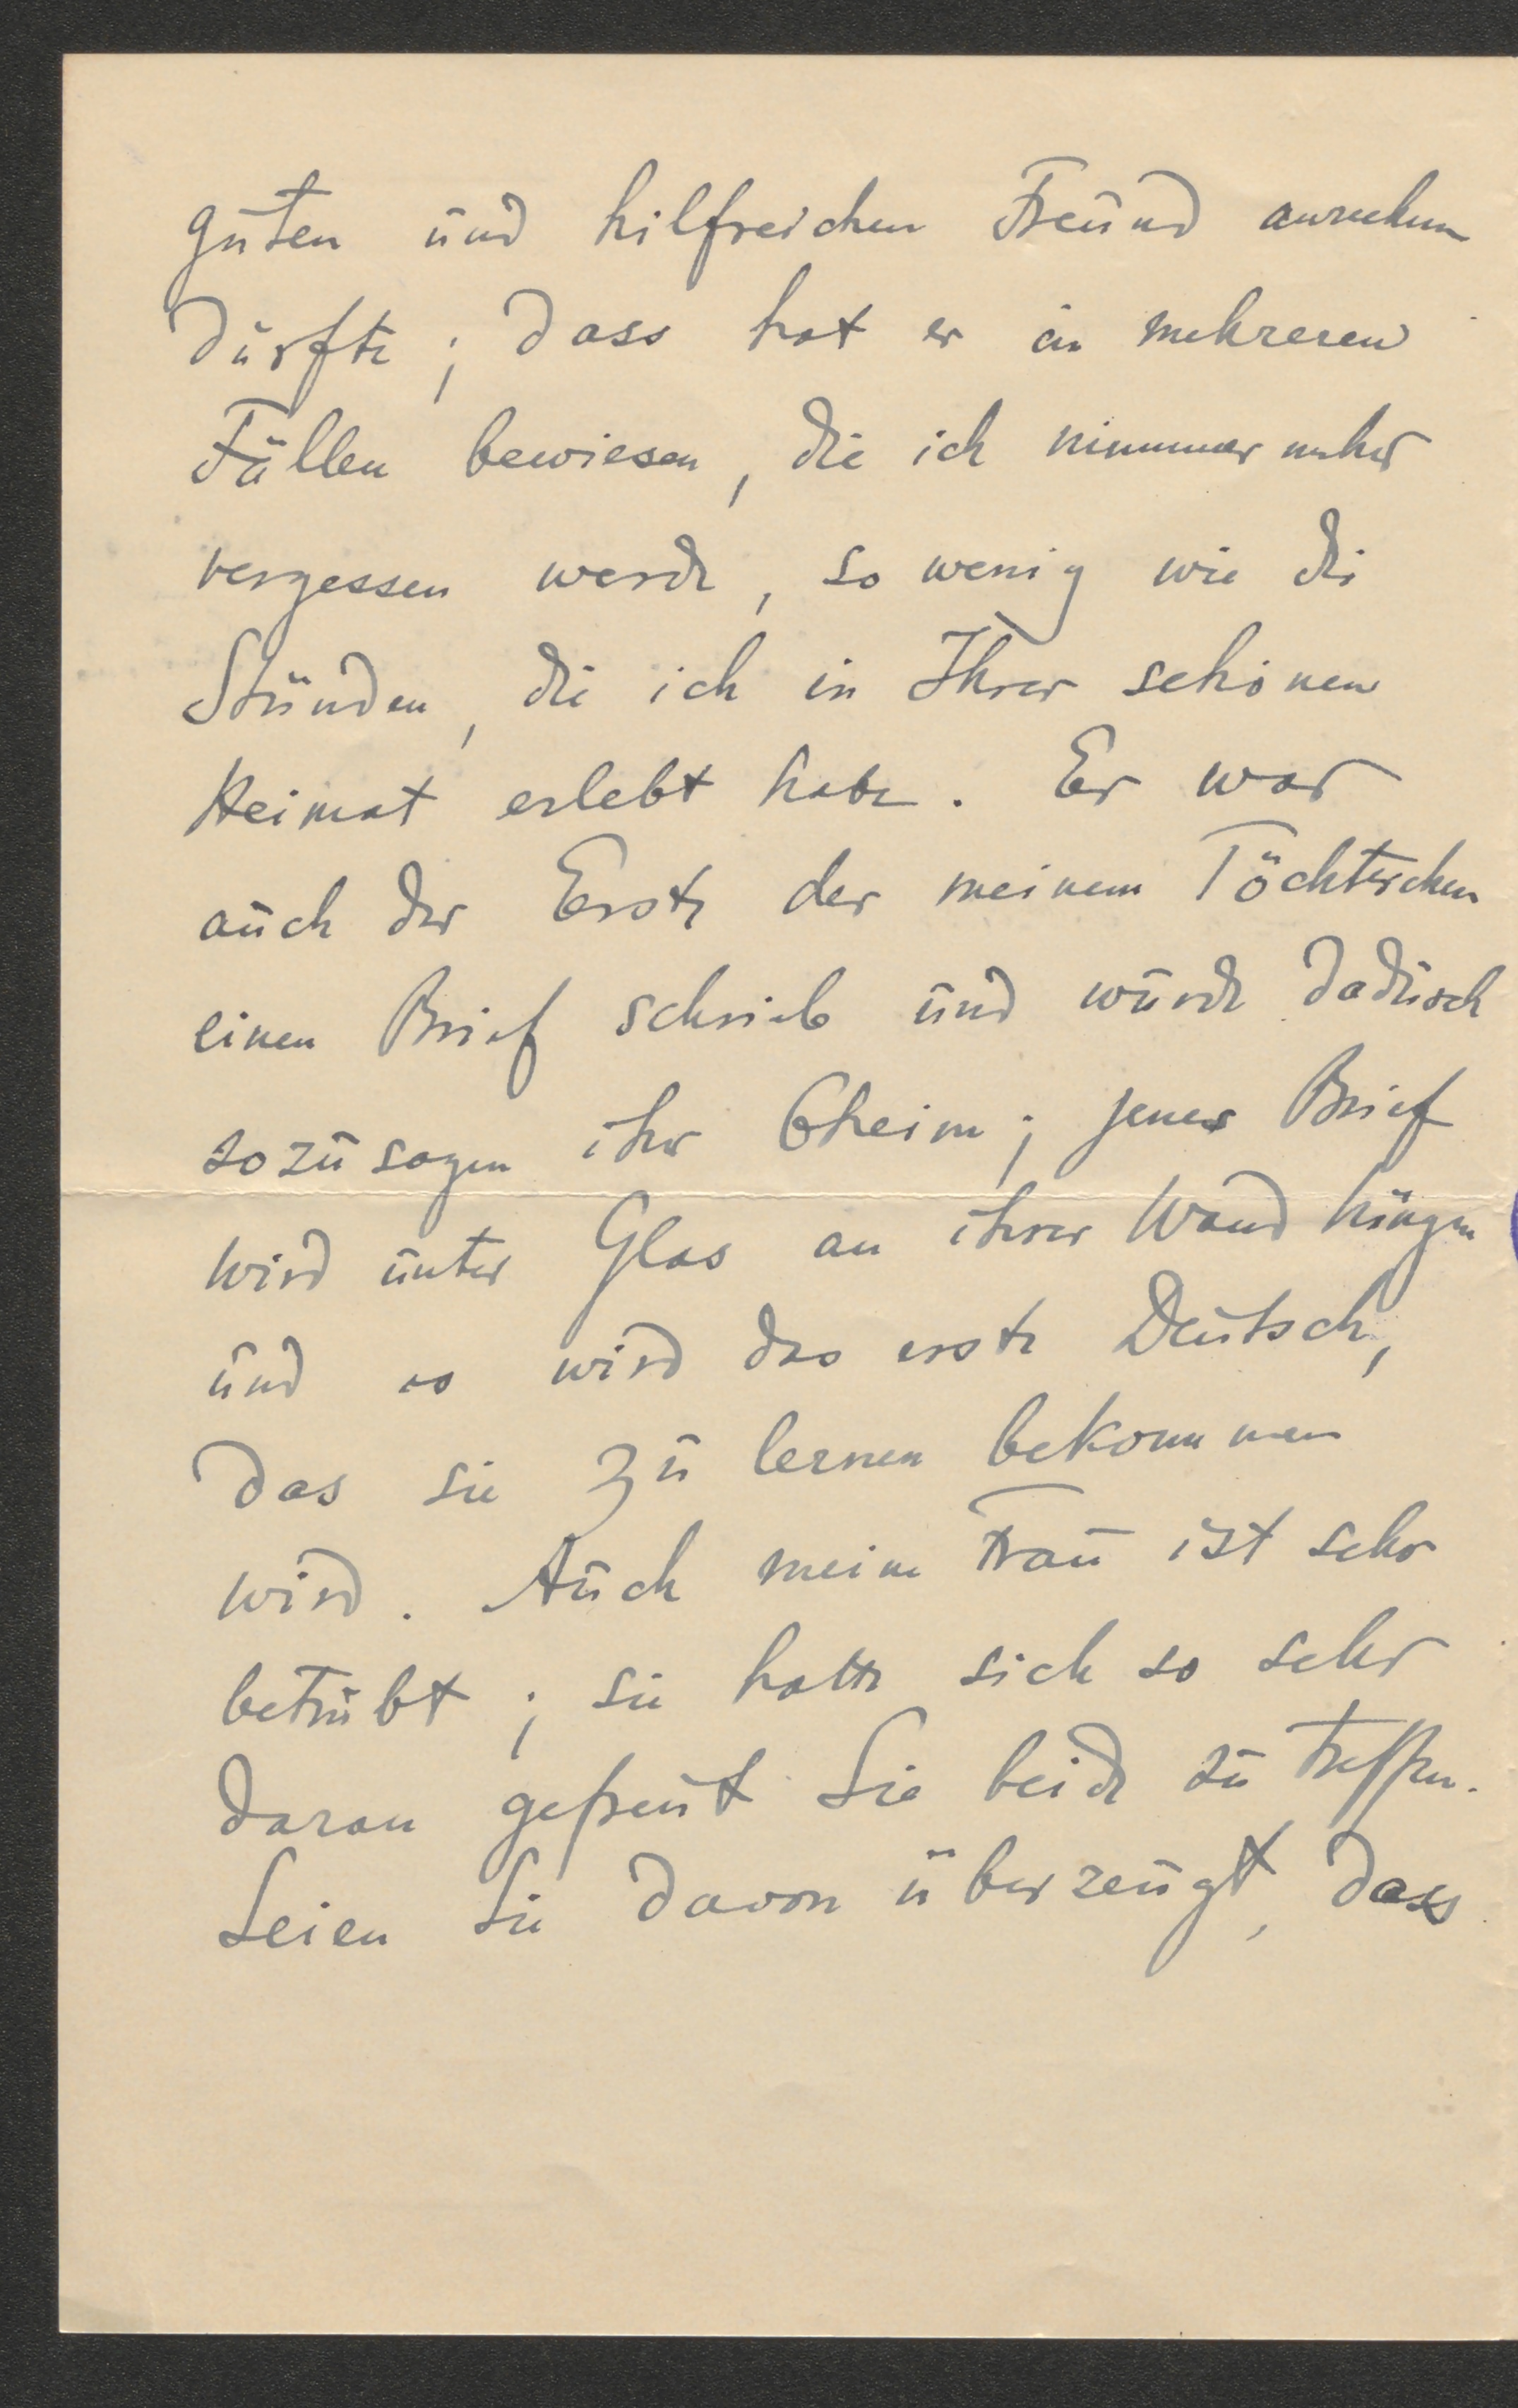 guten und hilfreichen Freund ansehen
dürfte; dass hat er in mehreren
Fällen bewiesen, die ich nimmermehr
vergessen werde, so wenig wie die
Stunden, die ich in Ihrer schönen
Heimat erlebt habe. Er war
auch der Erste der meinem Töchterchen
einen Brief schrieb und wurde dadurch
sozusagen ihr Oheim; jener Brief
wird unter Glas an ihrer Wand hängen
und es wird das erste Deutsch,
das sie zu lernen bekommen
wird. Auch meine Frau ist sehr
betrübt; sie hatte sich so sehr
daran gefreut Sie beide zu treffen.
Seien Sie davon überzeugt, dass